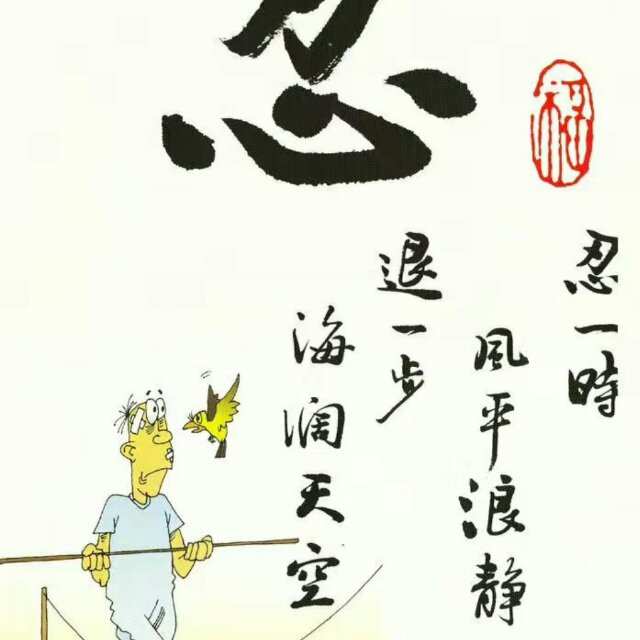 忍
忍一時
風平浪静
退一步
海阔天空